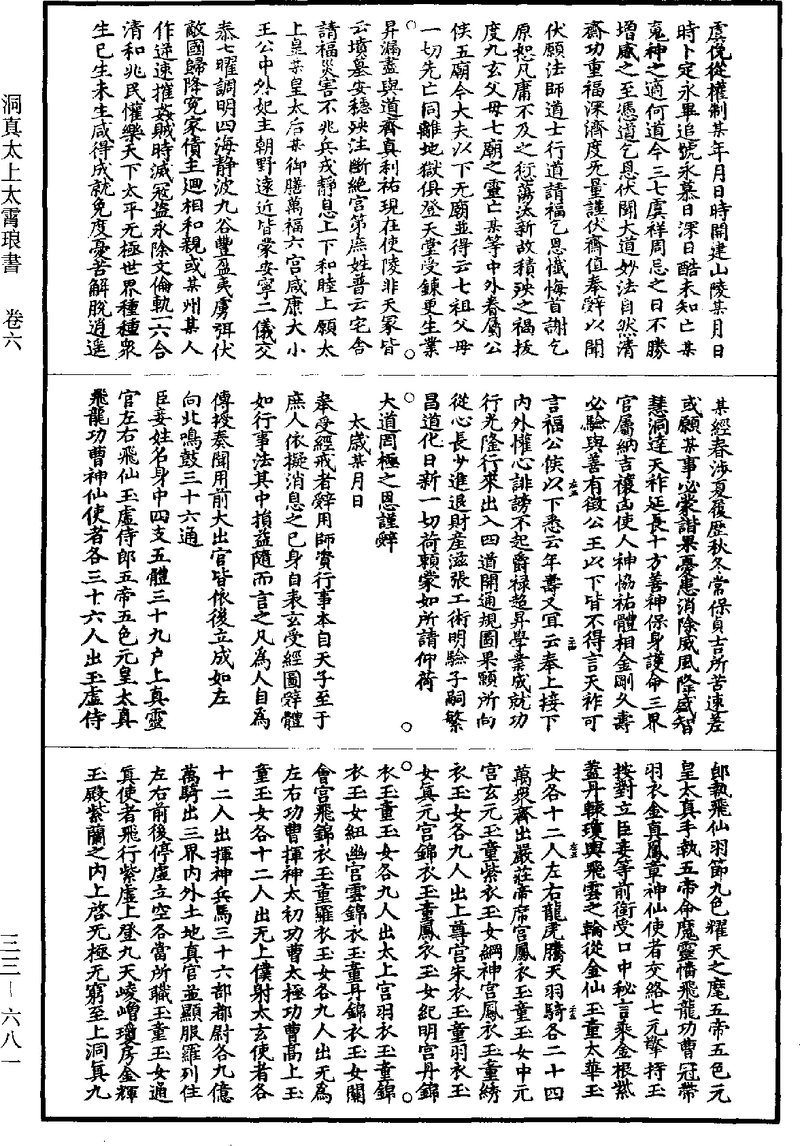 虞俛從權制某年月日時開建山陵某月日
時卜定永畢追號永慕日深日酷未知亡某
䰠神之適何道今三七虞祥周忌之日不勝
增感之至憑道乞恩伏聞大道妙法自然清
齋功重福深濟度无量謹伏齋值奉辭以聞
伏願法師道士行道請福乞恩懺悔首謝乞
原恕凡庸不及之愆蕩汰新故積殃之禍拔
度九玄父母七廟之靈亡某等中外眷屬公
侯五廟令大夫以下无廟並得云七祖父母
一切先亡同離地獄俱登天堂受鍊更生業
昇漏盡與道齊真利祐現在使陵非天冢皆
云墳墓安穩殃注斷絕宮第庶姓普云宅舍
請福災害不兆兵戎靜息上下和睦上願太
上皇某皇太后某御膳萬福六宮咸康大小
王公中外妃主朝野遠近皆蒙安寧二儀交
泰七曜調明四海靜波九谷豐益夷虜弭伏
敵國歸降冤家債主迴相和親或某州某人
作逆速摧姦賊時滅寇盜永除文倫軌一六合
清和兆民懽樂天下太平无極世界種種衆
生已生未生咸得成就免度憂苦解脫逍遥
某經春涉夏履歷秋冬常保貞吉所苦速差
或願某事必蒙諧果憂患消除威風隆盛智
慧洞達天祚延長十方善神保身護命三界
官屬納吉禳凶使人神恊祐體相金剛久壽
必驗與善有徵公王以下皆不得言天祚可
言福公侯以下悉云年壽又宜云奉上接下
內外懽心誹謗不起爵禄超昇學業成就功
行光隆行來出入四道開通規圖果願所向
從心長少進退財產滋張工術明驗子嗣繁
昌道化日新一切荷賴蒙如所請仰荷
大道罔極之恩謹辭
太歲某月日
奉受經戒者辭用師資行事本自天子至于
庶人依擬消息之已身自表玄受經圖辭體
如行事法其中損益隨而言之凡為人自為
傳授奏聞用前大出官皆依後立成如左
向北鳴鼓三十六通
臣妾姓名身中四支五體三十九户上真靈
官左右飛仙玉虛侍郎五帝五色元皇太真
飛龍功曹神仙使者各三十六人出玉虛侍
郎執飛仙羽節九色耀天之麾五帝五色元
皇太真手執五帝命魔靈幡飛龍功曹冠帶
羽衣金真鳳章神仙使者交絡七元擎持玉
按對立臣妾等前衛受口中秘言乘金根紫
蓋丹軿瓊輿飛雲之輪從金仙玉童太華玉
女各十二人左右龍虎騰天羽騎各二十四
萬衆齊出嚴莊帝席宮鳳衣玉童玉女中元
宮玄元玉童紫衣玉女綱神宮鳳衣玉童綉
衣玉女各九人出上尊宮朱衣玉童羽衣玉
女真元宮錦衣玉童鳳衣玉女紀明宮丹錦
衣玉童玉女各九人出太上宮羽衣玉童錦
衣玉女紐幽宮雲錦衣玉童丹錦衣玉女關
會宮飛錦衣玉童羅衣玉女各九人出无為
左右功曹揮神太初功曹太極功曹高上玉
童玉女各十二人出无上僕射太玄使者各
十二人出揮神兵馬三十六部都尉各九億
萬騎出三界內外土地真官並顯服羅列住
左右前後停虛立空各當所職玉童玉女通
真使者飛行紫虛上登九天崚嶒瓊房金輝
玉殿紫蘭之內上啓无極无窮至上洞真九
洞真太上太霄琅書　卷六
三三－六八一